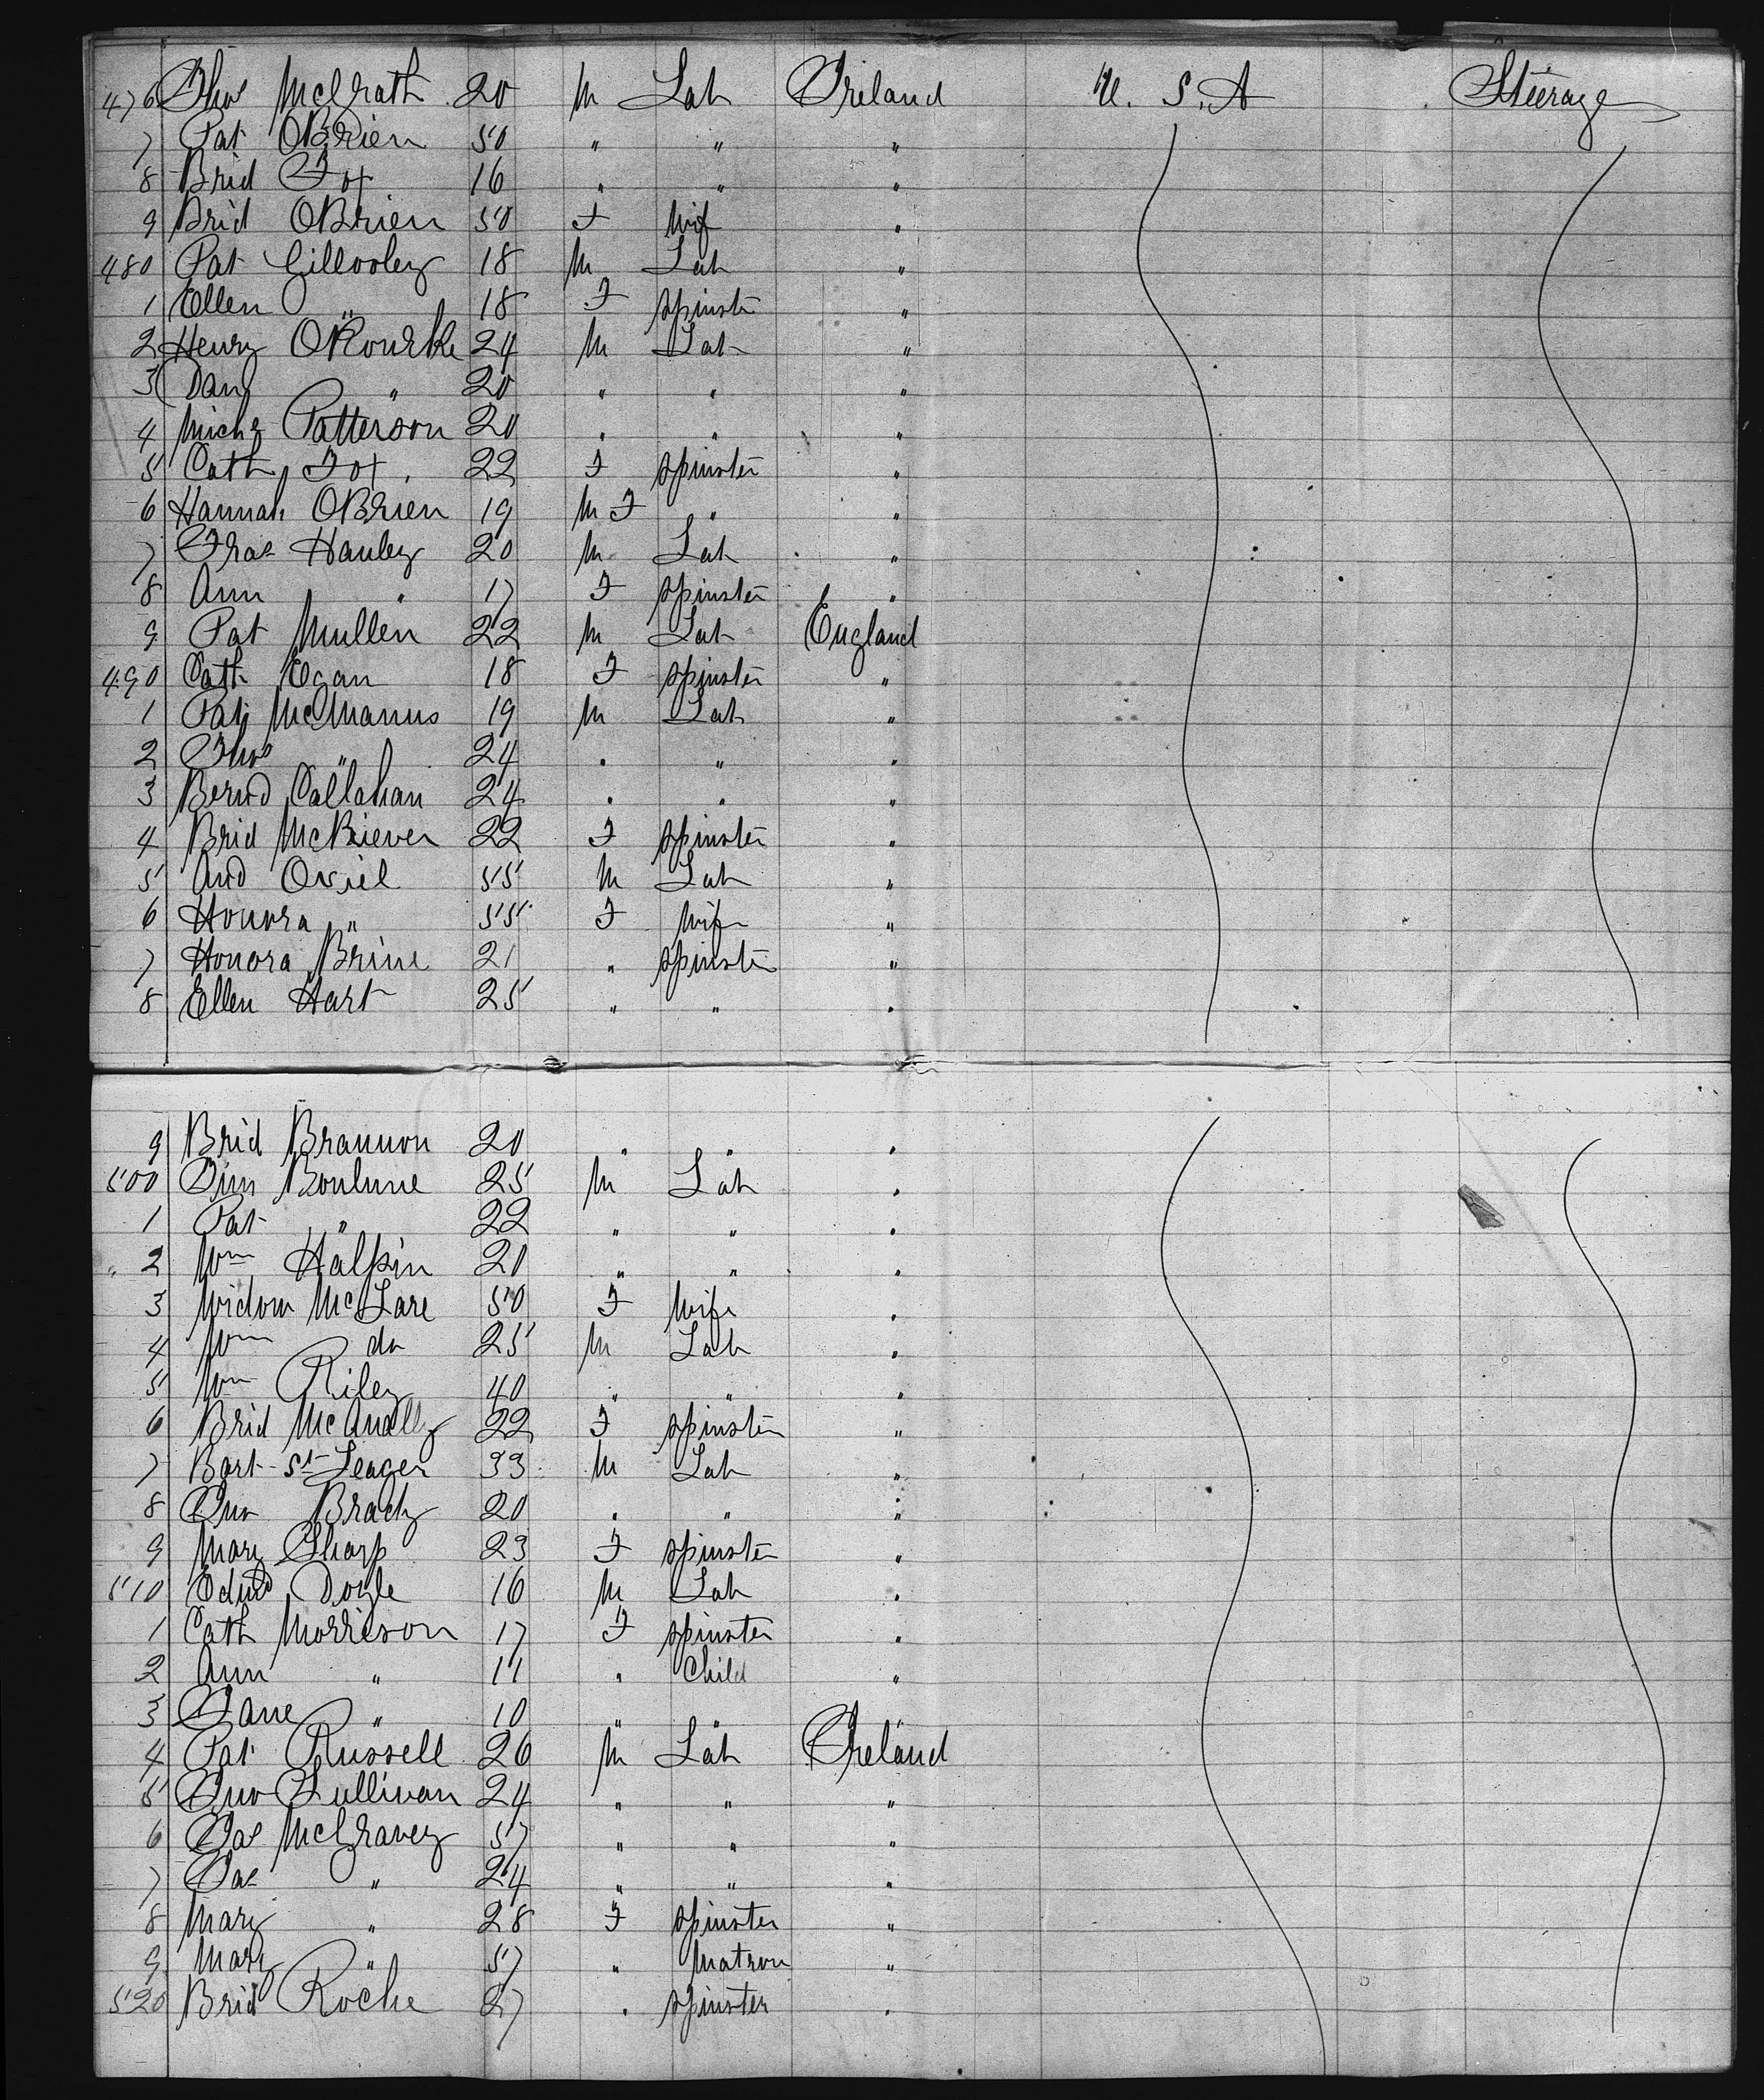 476 Thos McGrath 20 M Lab Ireland U. S. A Steerage
7 Pat OBrien 50 " " "
8 Brid Fox 16 " " "
9 Brid OBrien 50 F Wif "
480 Pat Gillooley 18 M Lab "
1 Ellen " 18 F spinstr "
2 Henry ORourke 24 M Lab "
3 Danl " 20 " " "
4 Michl Patterson 20 " " "
5 Cath Fox 22 F spinster "
6 Hannah OBrien 19 M F " "
7 Fras Hanley 20 M Lab "
8 Ann " 17 F spinster "
9 Pat Mullen 22 M Lab England
490 Cath Egan 18 F spinster "
1 Pat McManus 19 M Lab "
2 Thos " 24 " " "
3 Bernd Callahan 24 " " "
4 Brid McKiever 22 F spinster "
5 And 55 M Lab "
6 Honora " 55 F Wife "
7 Honora Brine 21 " spinster "
8 Ellen Hart 25 " " "
9 Brid Brannon 20 " " "
500 Jim 25 M Lab "
1 Pat " 22 " " "
2 Wm Halpin 20 " " "
3 Widow McLare 50 F Wife "
4 Wm do 25 M Lab "
5 Wm Riley 40 " " "
6 Brid McAnally 22 F spinster "
7 Bart St Leager 33 M Lab "
8 Jno Brady 20 " " "
9 Mary Sharp 23 F spinster "
510 Edwd Doyle 16 M Lab "
1 Cath Morrison 17 F spinster "
2 Ann " 11 " Child "
3 Jane " 10 " " "
4 Pat Russell 26 M Lab Ireland
5 Jno Sullivan 24 " " "
6 Jas McGravey 57 " " "
7 Jas " 24 " " "
8 Mary " 28 F spinster "
9 Mary " 57 " Matron "
520 Brid Roche 27 " spinster "